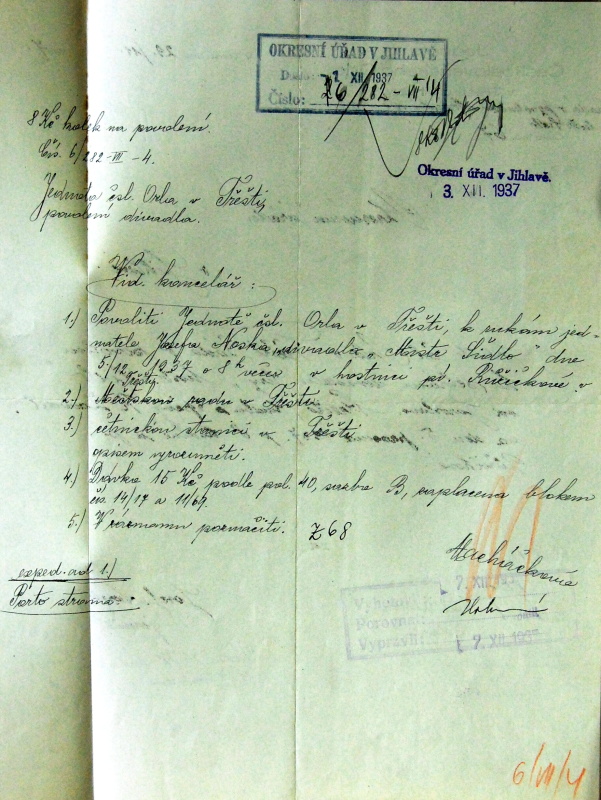 OKRESNÍ ÚŘAD V JIHLAVĚ
Došlo: 2 XII. 1937
Číslo: 26/282-VII-14
Okresní úřad v Jihlavě.
3. XII. 1937
8 Kč kolek na povolení.
Čís. 6/282-VII-4.
Jednota čsl. Orla v Třešti,
povolení divadla.
Vid. kancelář:
1.) Povoliti Jednotě čsl. Orla v Třešti, k rukám jed-
natele Josefa Noska, divadlo „Mistr Šídlo" dne
5/12 1937 o 8 h večer v hostinci pí. Růžičkové v
Třešti.
2.) Městskou radu v Třešti
3.) četnickou stanici v Třešti
opisem vyrozuměti.
4.) Dávka 15 Kč podle pol. 40, sazba B, zaplacena blokem
čís. 14/17 a 11/67.
5.) V záznamu poznačiti. Z 68
Macháčková
exped. ad 1.)
Porto strana
7. XII. 1937
Porovna
Vypravil: 7. XII. 1937
6/VII/4